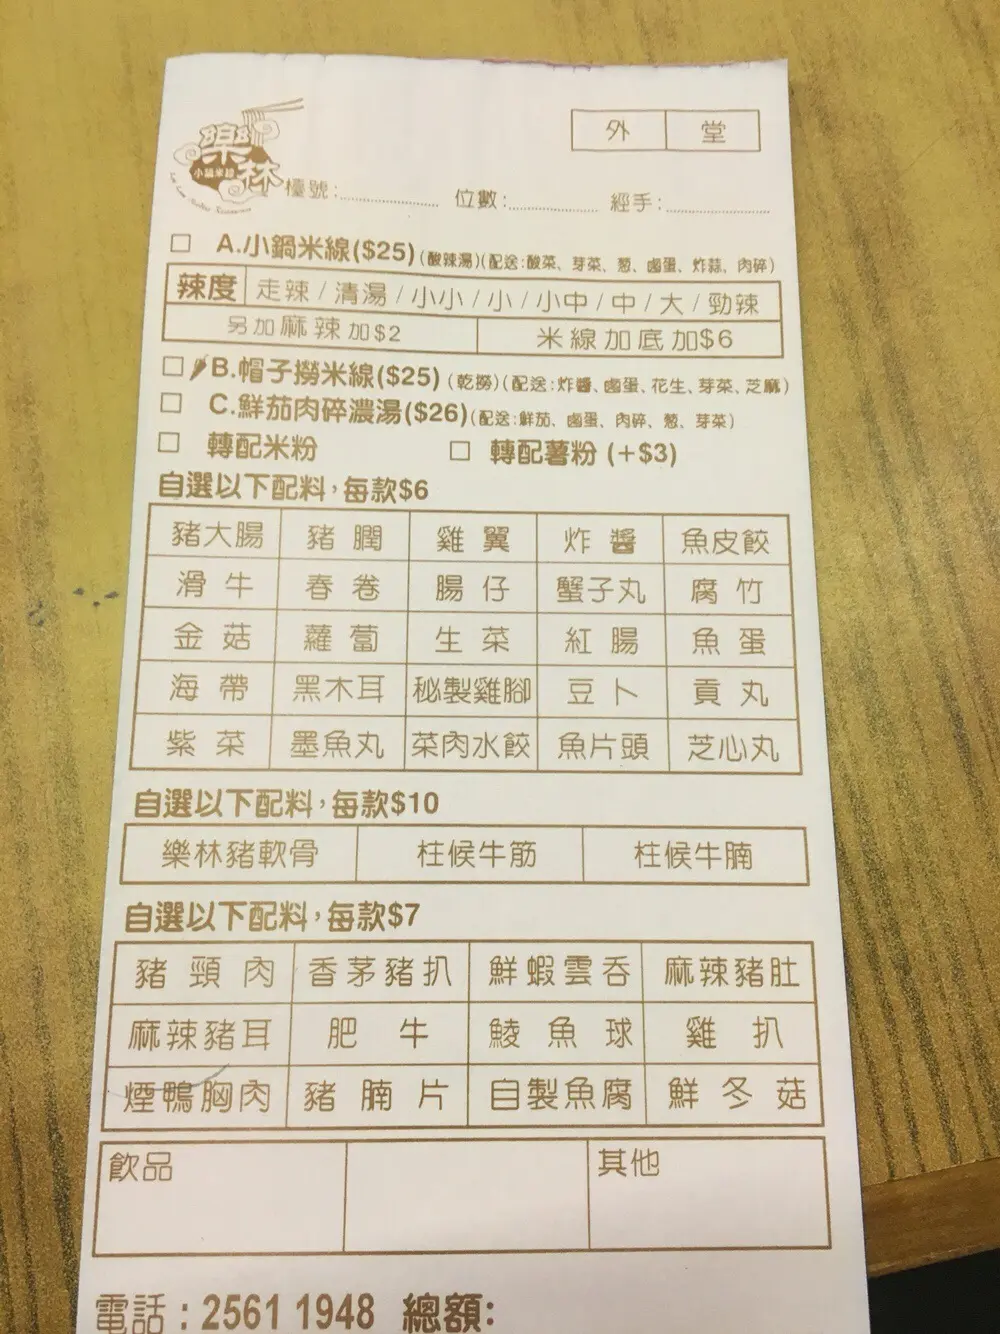 外 堂
樂林
小鍋米線
檯號: 位數: 經手:
A.小鍋米線($25)(酸辣湯)(配送:酸菜、芽菜、葱、鹵蛋、炸蒜、肉碎)
辣度 走辣/清湯/小小/小/小中/中/大/勁辣
另加麻辣加$2 米線加底加$6
B.帽子撈米線($25)(乾撈)(配送:炸醬、鹵蛋、花生、芽菜、芝麻)
C.鮮茄肉碎濃湯($26)(配送:鮮茄、鹵蛋、肉碎、葱、芽菜)
轉配米粉 轉配薯粉(+$3)
自選以下配料,每款$6
豬大腸 豬膶 雞翼 炸醬 魚皮餃
滑牛 春卷 腸仔 蟹子丸 腐竹
金菇 蘿蔔 生菜 紅腸 魚蛋
海帶 黑木耳 秘製雞腳 豆卜 貢丸
紫菜 墨魚丸 菜肉水餃 魚片頭 芝心丸
自選以下配料,每款$10
樂林豬軟骨 柱候牛筋 柱候牛腩
自選以下配料,每款$7
豬頸肉 香茅豬扒 鮮蝦雲吞 麻辣豬肚
麻辣豬耳 肥牛 鯪魚球 雞扒
煙鴨胸肉 豬腩片 自製魚腐 鮮冬菇
飲品 其他
電話:2561 1948 總額: